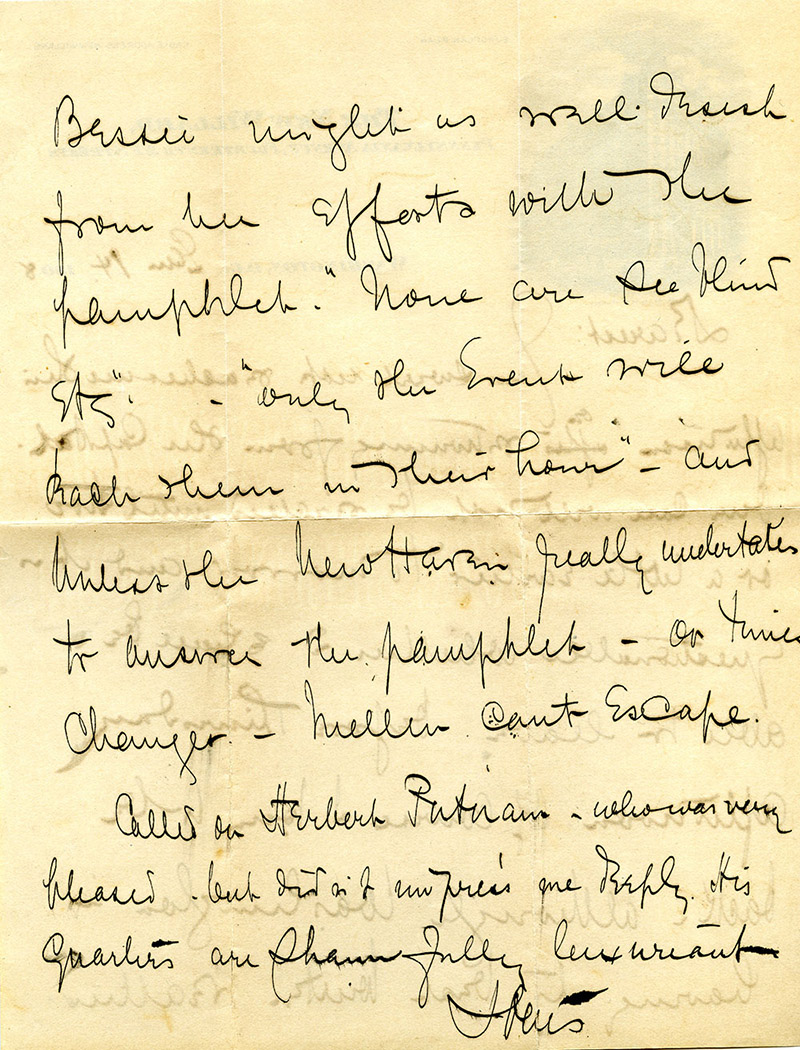 Bessie might as well desist
from her efforts with the
pamphlet." None are so blind
etc". - "only the event will
teach them in their hour" - and
Unless the New Haven really undertakes
to answer the pamphlet - or times
change. - Mellen cant escape.
Called on Herbert Putnam - who was very
pleased - but didn't impress me deeply. His
Quarters are shamefully luxuriant